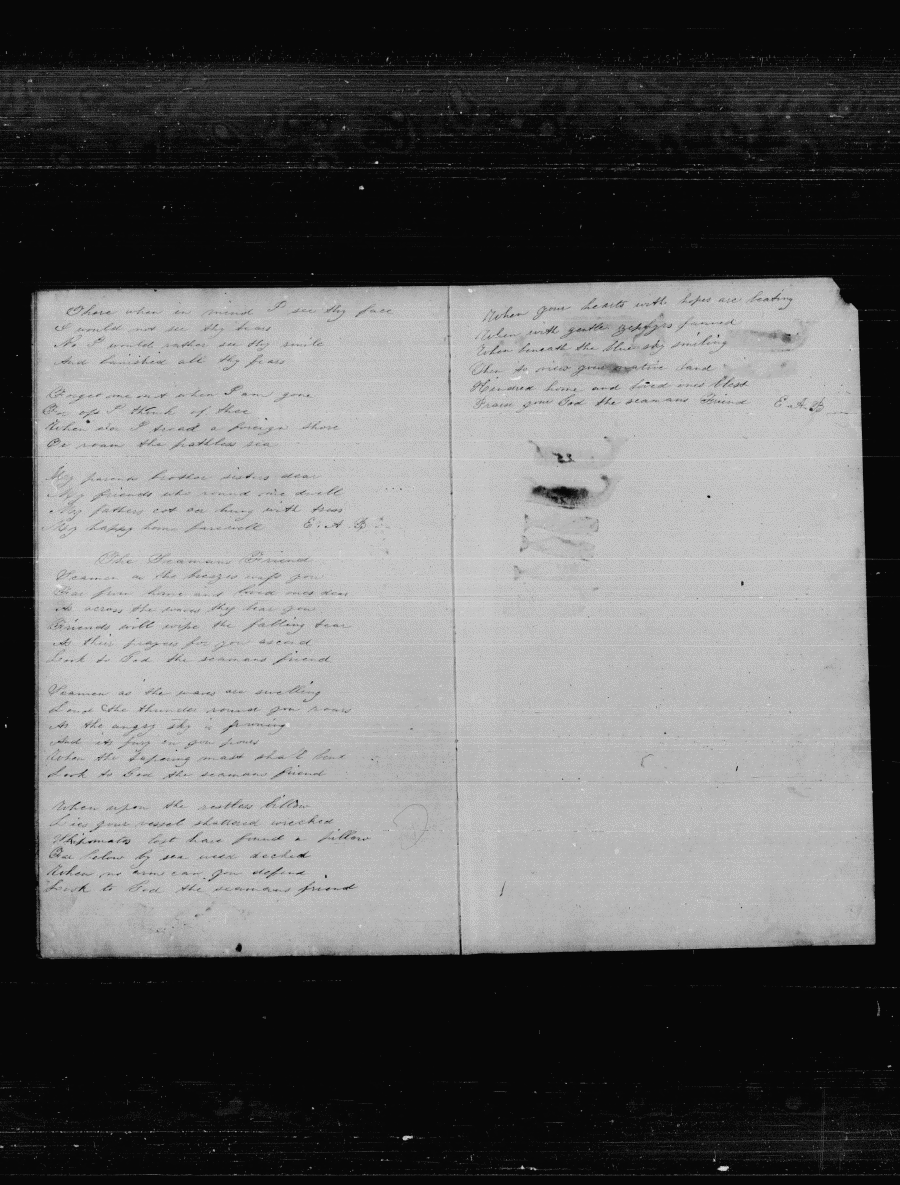 There when in mind I see thy face
I would not see thy tears
No I would rather see thy smile
And banished all thy fears
Forget me not when I am gone
For oft I think of thee
When ere I tread a foreign shore
Or roam the pathless sea
My parents brother sisters dear
My friends who round me dwell
My fathers cot over hung with trees
My happy home farewell E. A. B
The Seamans Friend
Seamen as the breezes waft you
Far from home and loved ones dear
As across the waves they bear you
Friends will wipe the falling tear
As their prayers for you ascend
Look to God the seamans friend
Seamen as the waves are swelling
Loud the thunder round you roars
As the angry sky is
And its fury on you pours
When the tapering mast shall bend
Look to God the seamans friend
When upon the restless billow
Lies your vessel shattered wrecked
Shipmates lost have found a pillow
Far below by sea weed decked
When no arms can you defend
Look to God the seamans friend
When your hearts with hopes are beating
When with gentle zephyrs fanned
When beneath the blue sky smiling
Then to view your native land
Kindred home and loved ones blest
Praise your God the seamans Friend E. A. B